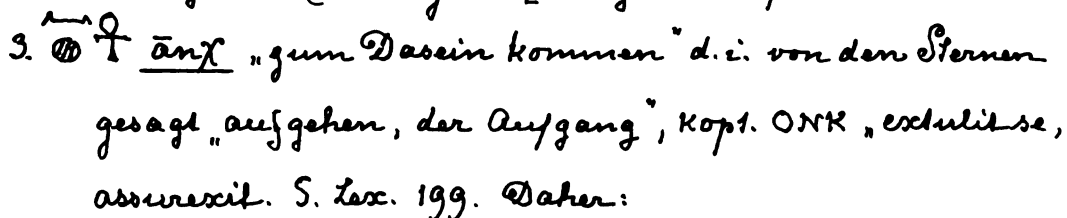 3. 𓈖𓐍𓋹 ānχ „zum Dasein kommen“ d. i. von den Sternen
gesagt „aufgehen, der Aufgang“, kopt. ⲱⲛⲕ „extulit se,
assurexit. S. Lex. 199. Daher: